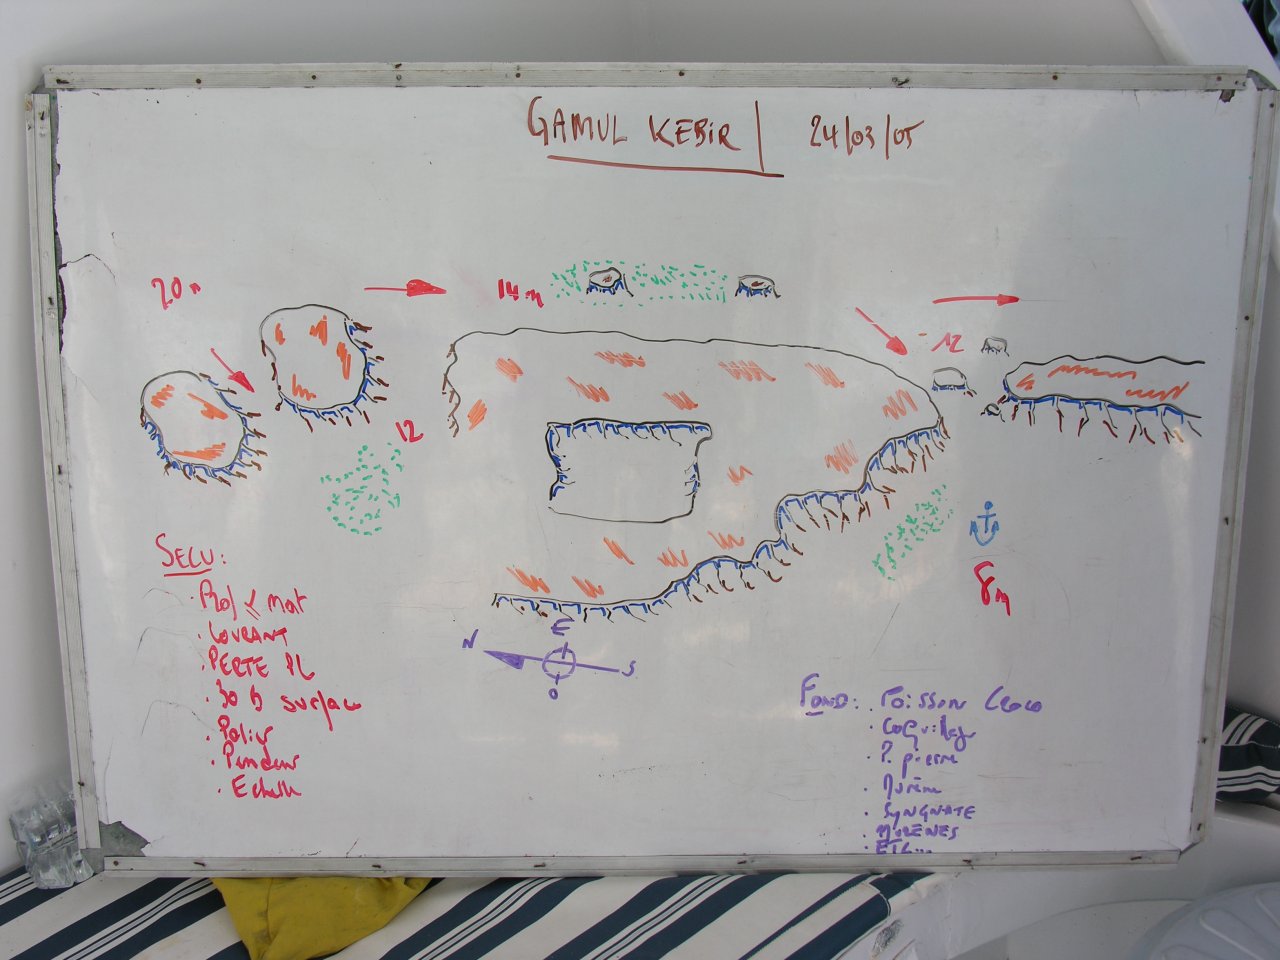 GAMUL KEBIR | 24/03/05
20m
14m
-12
12
8m
N
E
S
O
SECU:
. Prof ≤ mat
. COURANT
. PERTE PL
. 30 b surface
. Palier
. Pendeur
. Echelle
FOND: . Poisson Croco
. Coquillage
. P. pierre
. Murène
. SYNGNATE
. MURENES
. ETC...